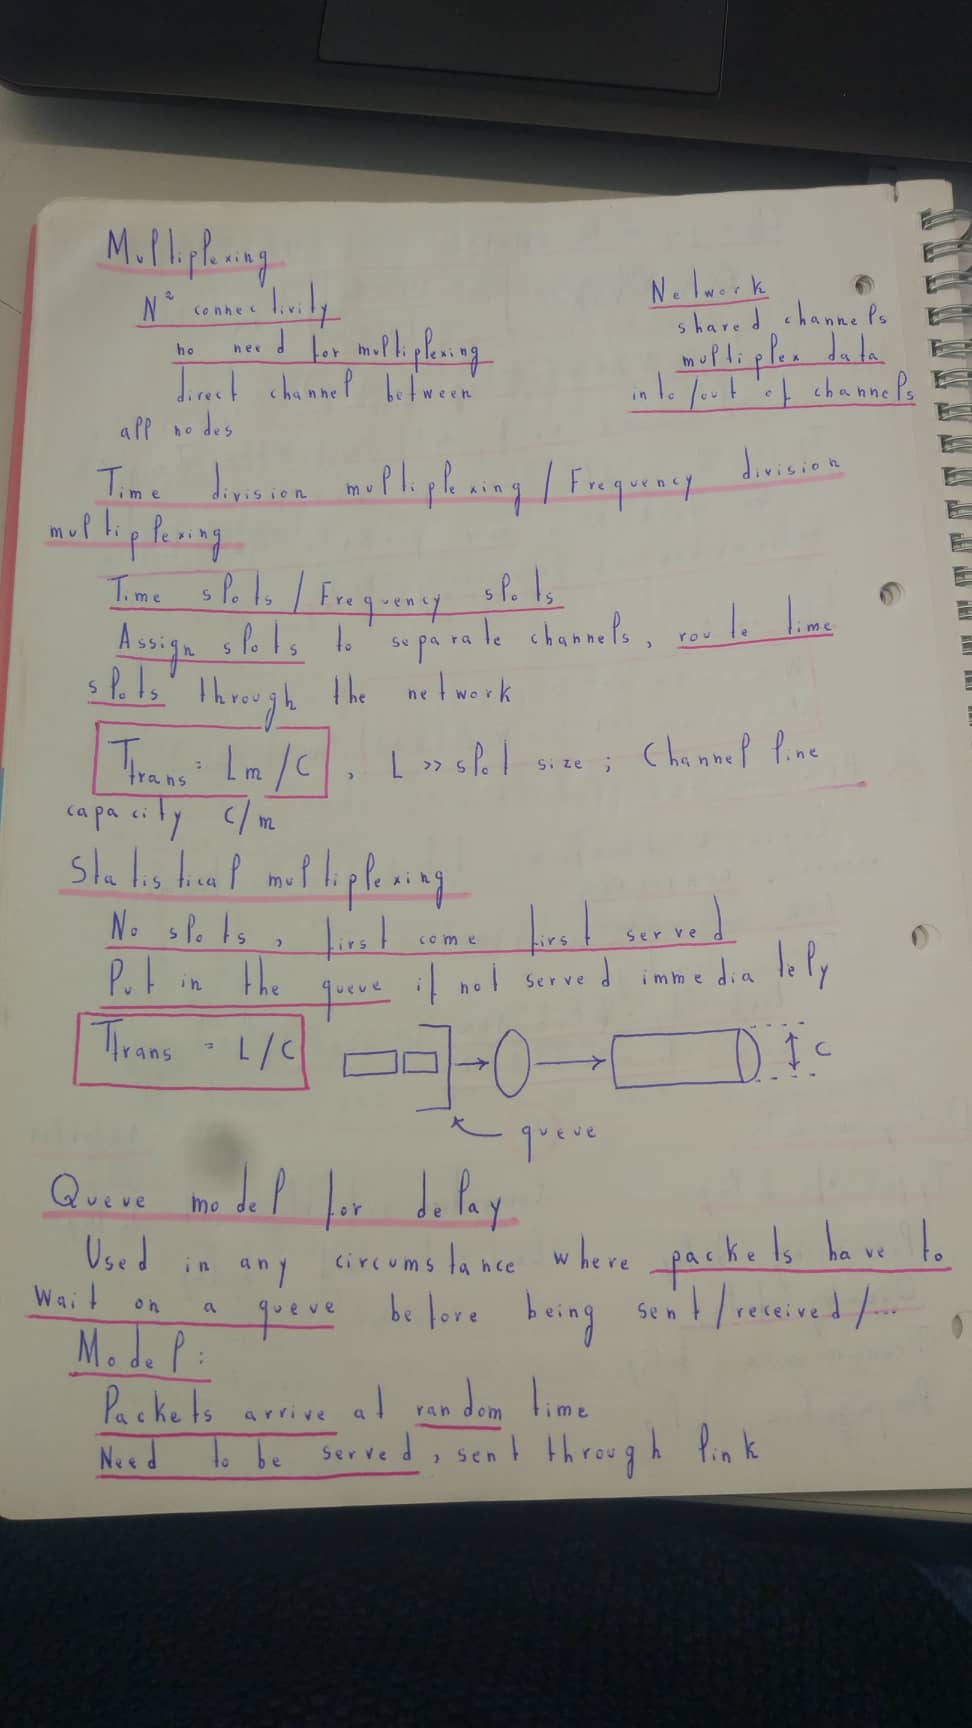 Multiplexing
N² connectivity
no need for multiplexing
direct channel between
all nodes
Network
shared channels
multiplex data
into/out of channels
Time division multiplexing / Frequency division
multiplexing
Time slots / Frequency slots
Assign slots to separate channels, route time
slots through the network
Ttrans = Lm/C, L >> slot size; Channel line
capacity C/m
Statistical multiplexing
No slots, first come first served
Put in the queue if not served immediately
Ttrans = L/C
C
queue
Queue model for delay
Used in any circumstance where packets have to
wait on a queue before being sent/received/...
Model:
Packets arrive at random time
Need to be served, sent through link